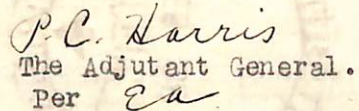 P. C. Harris
The Adjutant General.
Per Ea